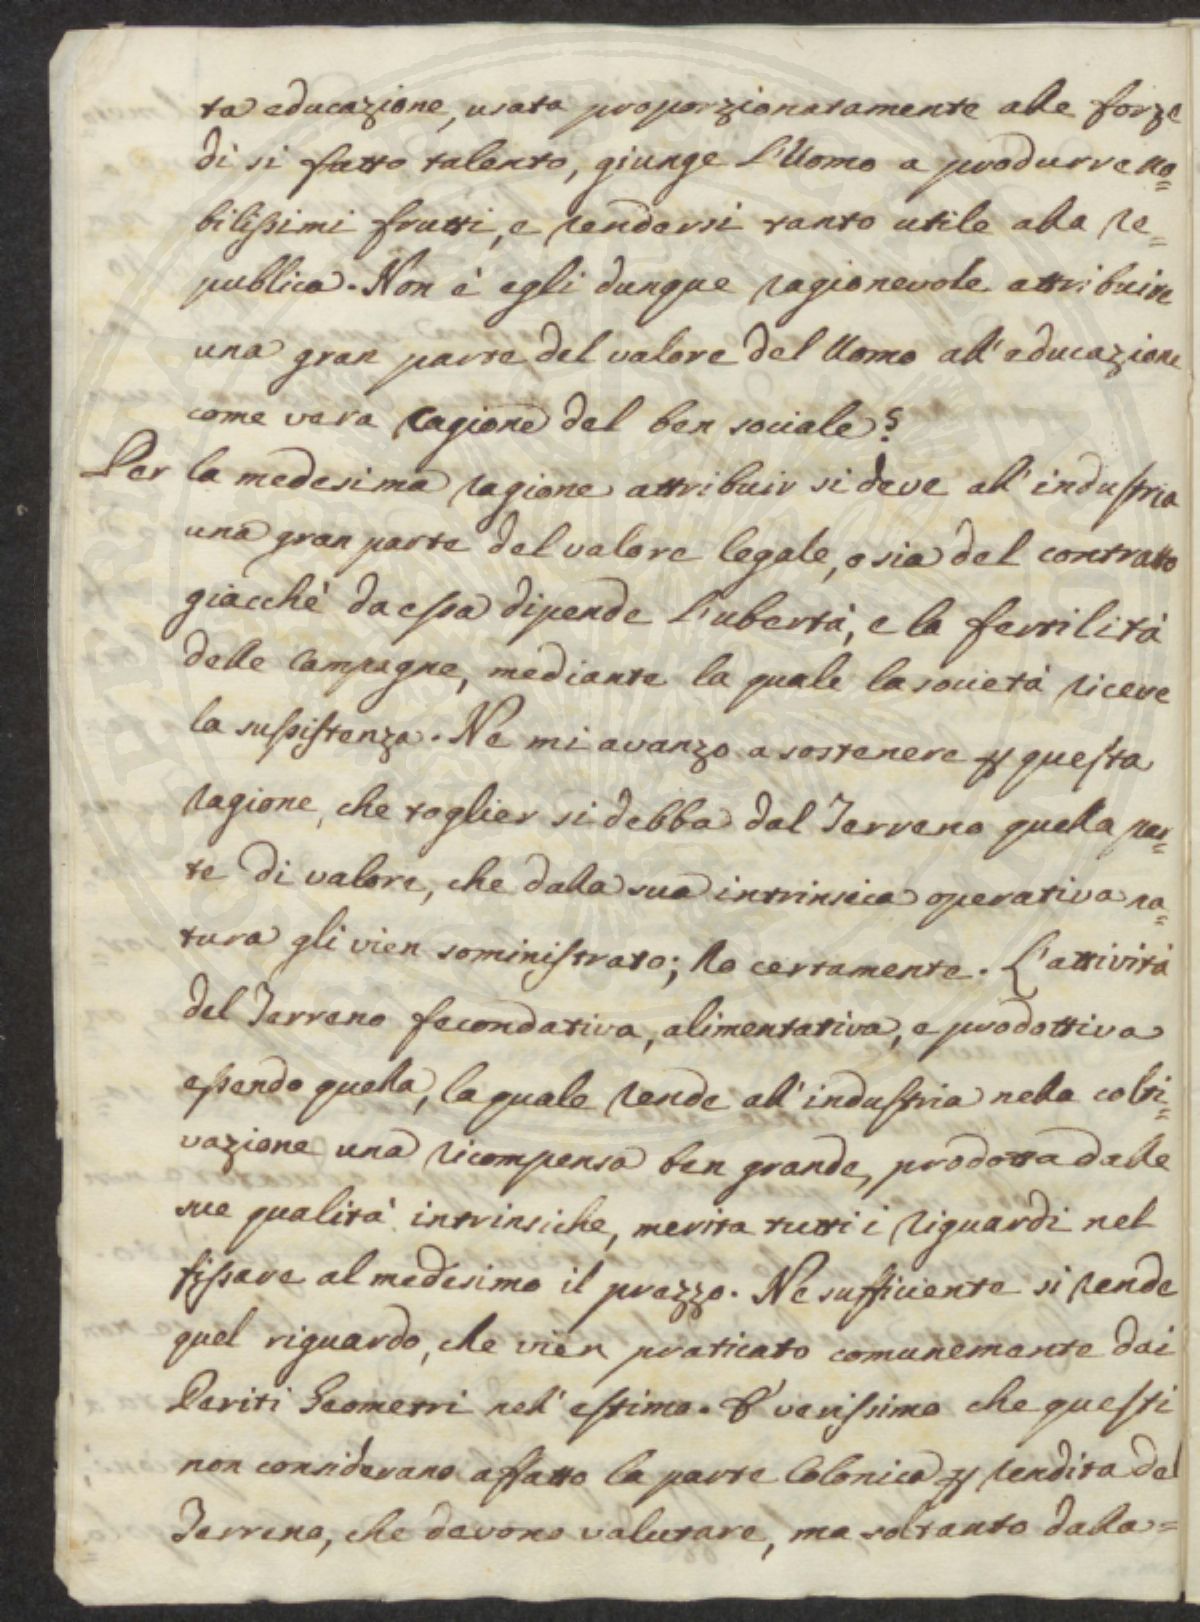 ta educazione, usata proporzionatamente alle forze
di si fatto talento, giunge l'Uomo a produrre no=
bilissimi frutti, e rendersi tanto utile alla re=
publica. Non è egli dunque ragionevole attribuire
una gran parte del valore del Uomo all'educazione
come vera cagione del ben sociale?
Per la medesima ragione attribuir si deve all'industria
una gran parte del valore legale, o sia del contratto
giacchè da essa dipende l'ubertà, e la fertilità
delle Campagne, mediante la quale la società riceve
la sussistenza. Ne mi avanzo a sostenere p questa
ragione, che toglier si debba dal Terreno quella par=
te di valore, che dalla sua intrinsica operativa na=
tura gli vien soministrato; No certamente. L'attività
del Terreno fecondativa, alimentativa, e prodottiva
essendo quella, la quale rende all'industria nella colti=
vazione una ricompensa ben grande, prodotta dalle
sue qualità intrinsiche, merita tutti i riguardi nel
fissare al medesimo il prezzo. Ne sufficiente si rende
quel riguardo, che vien praticato comunemente dai
Periti Geometri nell'estimo. E' verissimo che questi
non considerano affatto la parte Colonica p rendita del
Terreno, che devono valutare, ma soltanto dalla=